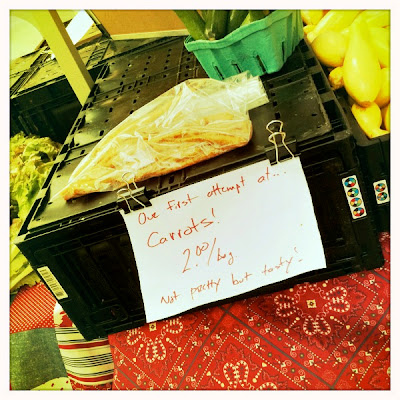 Our first attempt at...
Carrots!
2.00/bag
Not pretty but tasty!